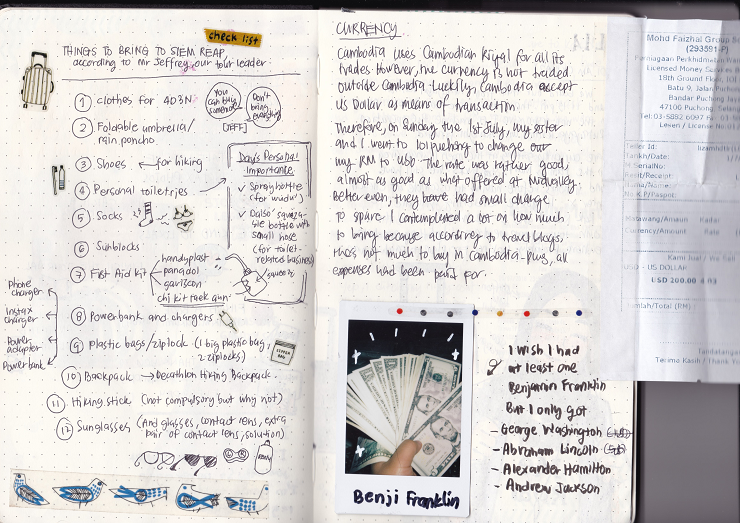 check list
THINGS TO BRING TO SIEM REAP
according to Mr Jeffrey, our tour leader.
1 clothes for 4D3N
You can buy somemore
Don't bring everything
2 Foldable umbrella/
rain poncho
3 Shoes for hiking
4 Personal toiletries
5 Socks
6 Sunblocks
7 First Aid kit
handyplast
panadol
gaviscon
chi kit teck aun
Day's Personal
Importance
✓ Spray bottle
(for wudu')
✓ Daiso squeeza-
ble bottle with
small hose
(for toilet-
related business)
squeeze
8 Powerbank and chargers
Phone
charger
Instax
charger
Power
adapter
Powerbank
9 plastic bags/ziplock (1 big plastic bag,
2 ziplocks)
10 Backpack → Decathlon Hiking Backpack.
11 Hiking stick (not compulsory but why not)
12 Sunglasses (And glasses, contact lens, extra
pair of contact lens, solution)
CURRENCY
Cambodia uses Cambodian Riyal for all its
trades. However, the currency is not traded
outside Cambodia. Luckily, Cambodia accept
US Dollar as means of transaction.
Therefore, on Sunday the 1st July, my sister
and I went to IOI Puchong to change our
my RM to USD. The rate was rather good,
almost as good as what offered at Midvalley.
Better even, they have had small change
to spare. I contemplated a lot on how much
to bring because according to travel blogs,
there's not much to buy in Cambodia. Plus, all
expenses had been paid for.
Benji Franklin
I wish I had
at least one
Benjamin Franklin
But I only got
- George Washington
- Abraham Lincoln
- Alexander Hamilton
- Andrew Jackson
Mohd Faizhal Group
(293591-P)
Perniagaan Perkhidmatan
Licensed Money
18th Ground Floor, IOI
Batu 9, Jalan
Bandar Puchong
47100 Puchong,
Tel:03-5882 6097
Lesen / License No:
Teller Id:
Tarikh/Date:
M.SerialNo:
Resit/Receipt:
Nama/Name:
No K.P/Paspot:
Matawang/Amount Kadar
Currency/Amount Rate
Kami Jual / We Sell
USD - US DOLLAR
USD 200.00
Jumlah/Total (RM)
Tandatangan
Terima Kasih / Thank